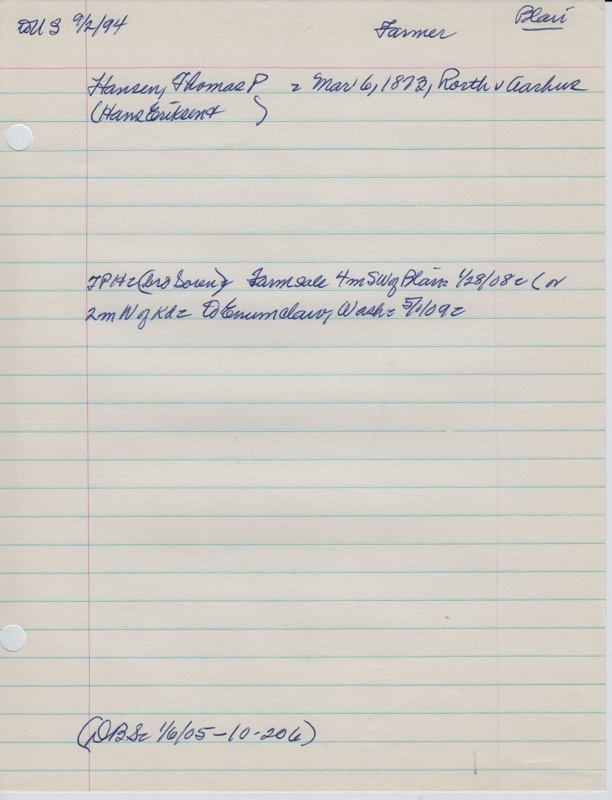 DUS 9/2/94 Farmer Blair
Hansen, Thomas P = Mar 6, 1873, Rorth v Aarhus
(Hans Eriksen + )
TPH = (bro Soren) Farm sale 4m SW of Blair 1/28/08 = (or
2m W of Kd = To Enumclaw, Wash = 5/1/09 =
(DBS = 1/6/05-10-206)